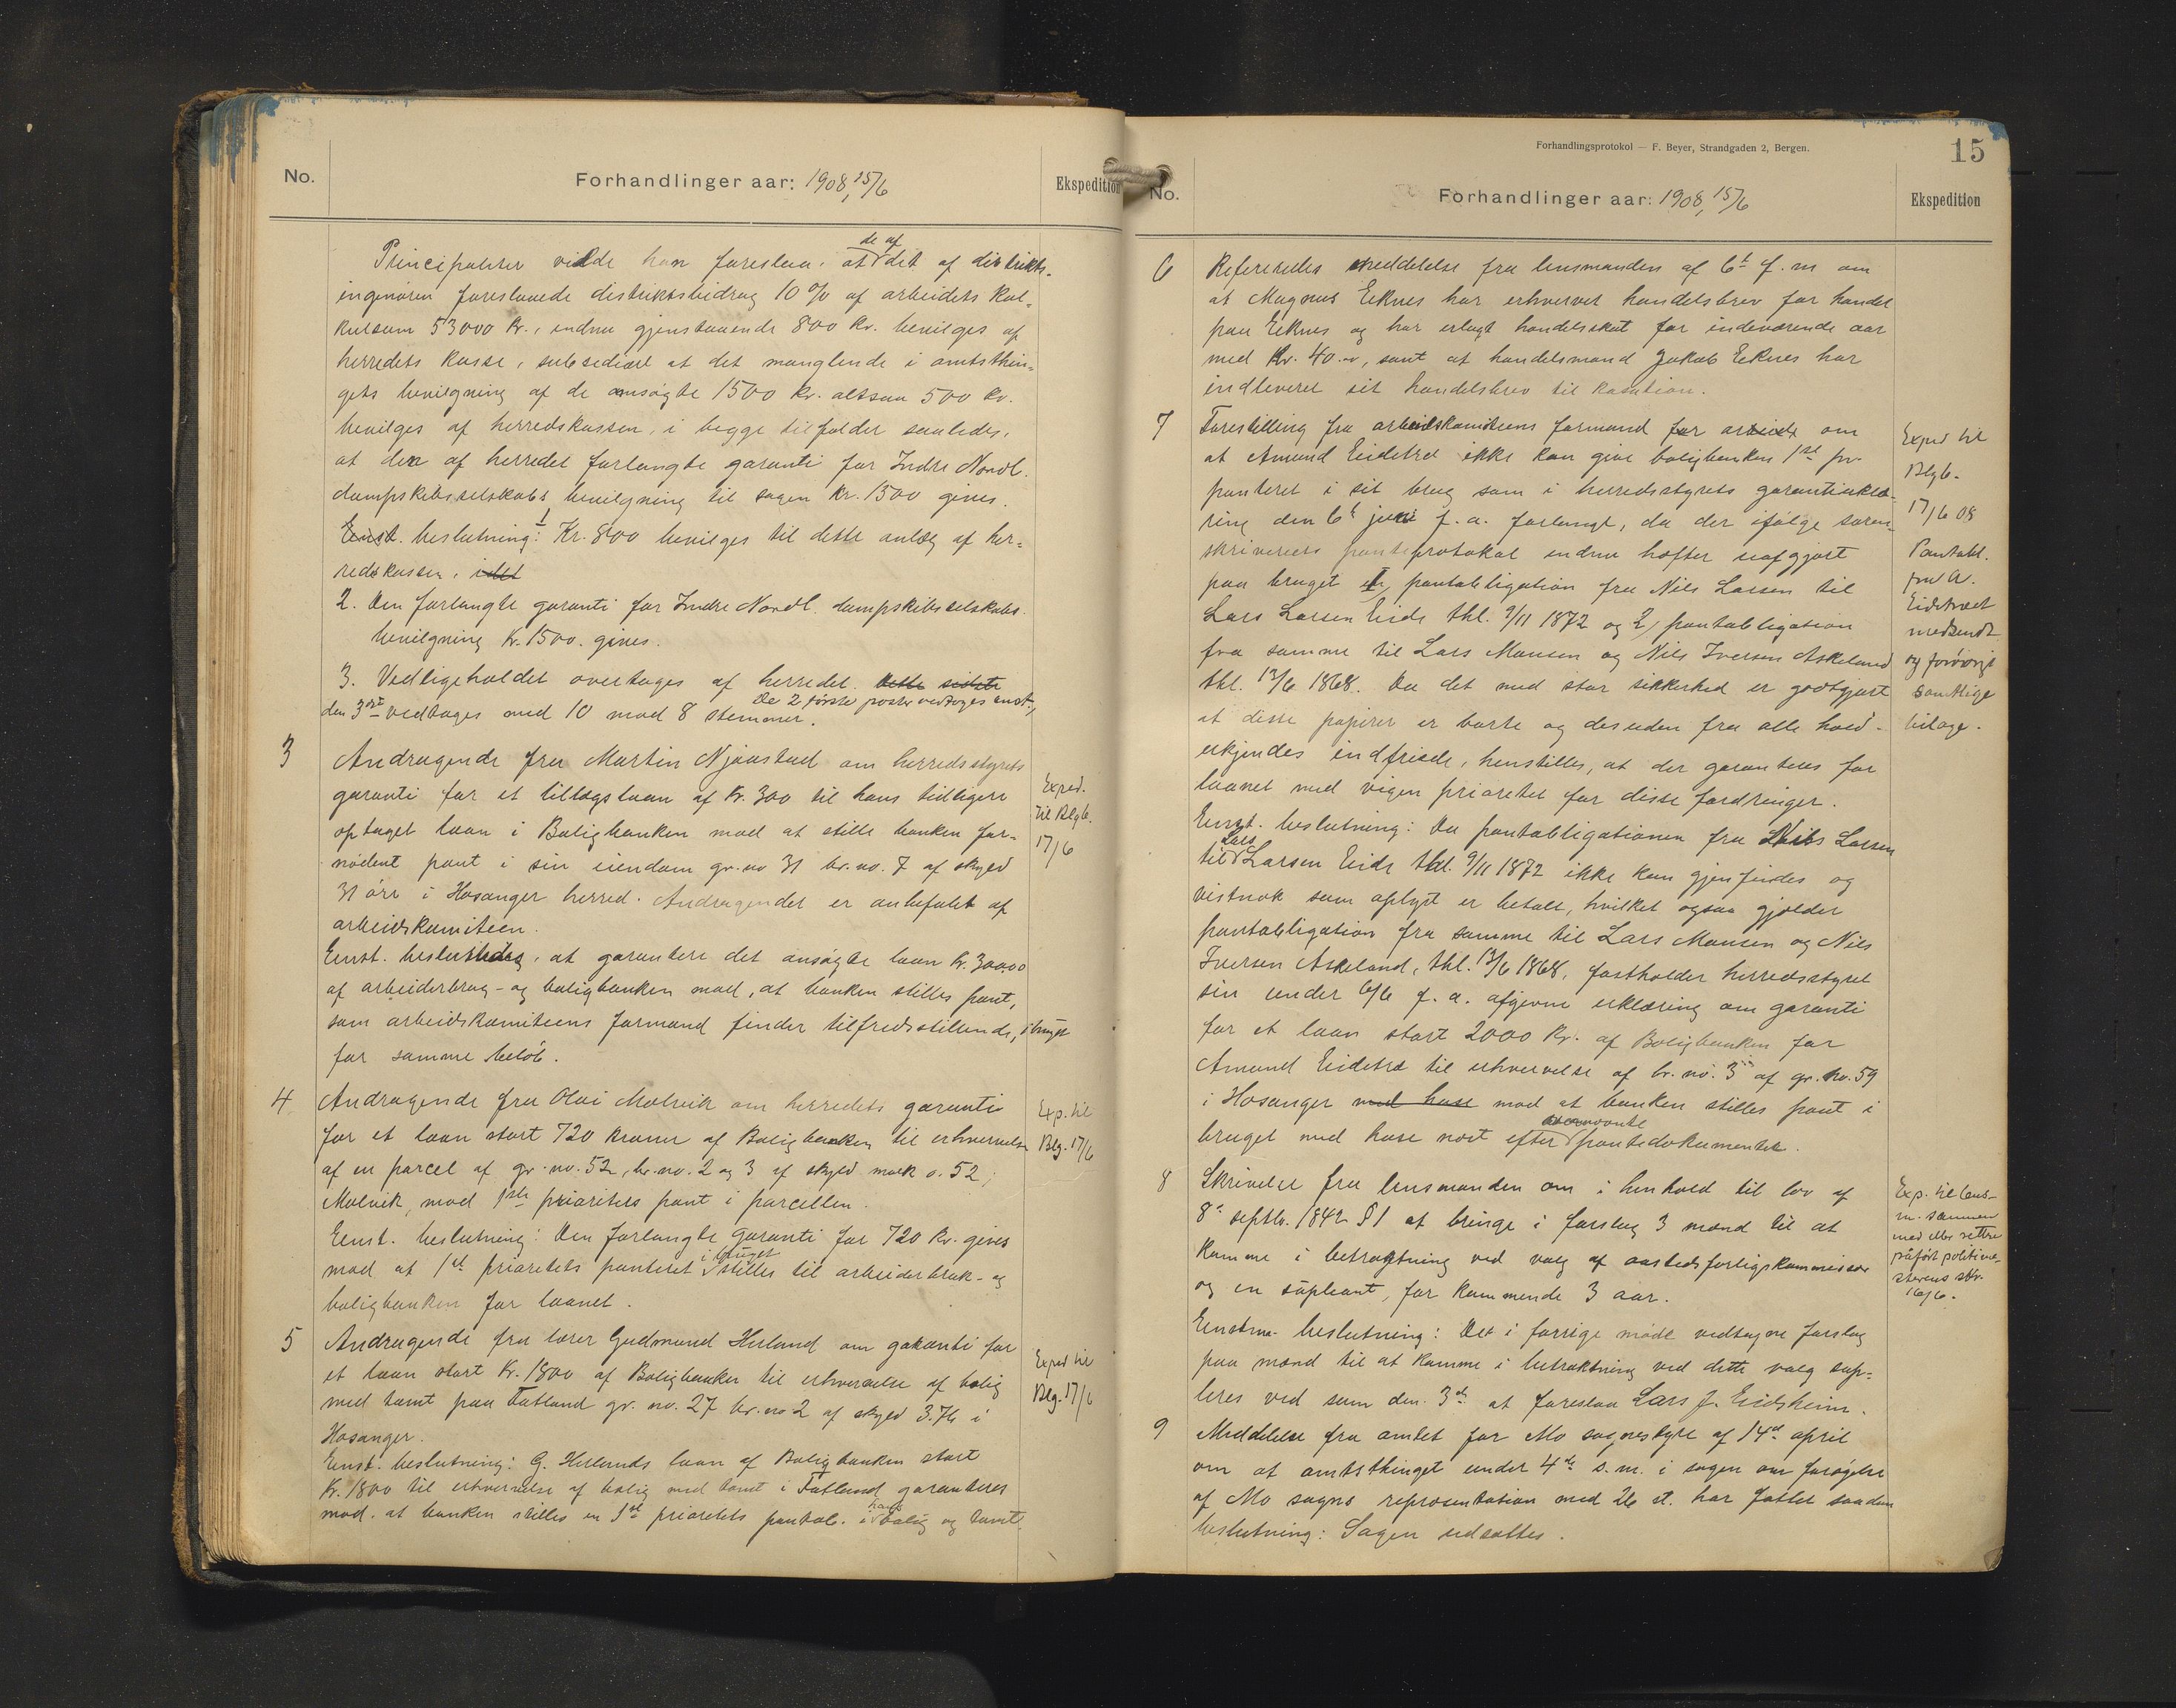 No.
Forhandlinger aar: 1908, 15/6
Ekspedition
Principaliter vilde han foreslaa, at de af det af distrikts-
ingeniøren foreslaaede distriktsbidrag 10 % af arbeidets kal-
kulsum 53000 kr., endnu gjenstaaende 800 kr. bevilges af
herredets kasse, subsediært at det manglende i amtsthin-
gets bevilgning af de ansøgte 1500 kr. altsaa 500 kr.
bevilges af herredskassen, i begge tilfælder saaledes,
at den af herredet forlangte garanti for Indre Nordl.
dampskibsselskabs bevilgning til sagen kr. 1500 gives.
Enst. beslutning: 1, Kr. 800 bevilges til dette anlæg af her-
redskassen, idet
2. Den forlangte garanti for Indre Nordl. dampskibsselskabs
bevilgning Kr. 1500. gives.
3. Vedligeholdet overtages af herredet. Dette sidste
De 2 første poster vedtoges enst.,
den 3die vedtoges med 10 mod 8 stemmer.
3 Andragende fra Martin Njaastad om herredsstyrets
garanti for et tillægslaan af Kr. 300 til hans tidligere
optaget laan i Boligbanken mod at stille banken for-
nødent pant i sin eiendom gr. no 31 br. no. 7 af skyld
31 øre i Hosanger herred. Andragendet er anbefalet af
arbeidskomiteen.
Exped.
til Blgb.
17/6
Enst. besluttedes, at garantere det ansøgte laan kr. 300.00
af arbeiderbrug- og boligbanken mod, at banken stilles pant,
som arbeidskomiteens formand finder tilfredsstillende, i bruget
for samme beløb.
4 Andragende fra Olai Molvik om herredets garanti
for et laan stort 720 kroner af Boligbanken til erhvervelse
af en parcel af gr. no. 52, br. no. 2 og 3 af skyld mark 0.52,
Molvik, mod 1ste prioritets pant i parcellen.
Exp. til
Blg. 17/6
Enst. beslutning: Den forlangte garanti for 720 kr. gives
mod at 1st prioritets panteret i bruget stilles til arbeiderbruk- og
boligbanken for laanet.
5 Andragende fra lærer Gudmund Herland om garanti for
et laan stort Kr. 1800 af Boligbanken til erhvervelse af bolig
med tomt paa Fatland gr. no. 27 br. no 2 af skyld 3.76 i
Hosanger.
Exped til
Blg. 17/6
Enst. beslutning: G. Herlands laan af Boligbanken stort
Kr. 1800 til erhvervelse af bolig med tomt i Fatland garanteres
mod. at banken stilles en 1st prioritets pantob. i hans bolig og tomt.
Forhandlingsprotokol — F. Beyer, Strandgaden 2, Bergen.
15
No.
Forhandlinger aar: 1908, 15/6
Ekspedition
6 Refereredes meddelelse fra lensmanden af 6t f. m om
at Magnus Eiknes har erhvervet handelsbrev for handel
paa Eiknes og har erlagt handelsskat for indeværende aar
med Kr. 40.-, samt at handelsmand Jakob Eiknes har
indleveret sit handelsbrev til kasation.
7 Forestilling fra arbeidskomiteens formand for arbeids om
at Amund Eidetræ ikke kan give boligbanken 1st pr.
panteret i sit brug som i herredsstyrets garantierklæ-
ring den 6t juni f. a. forlangt, da der ifølge soren-
skriverens panteprotokol endnu hæfter uafgjort
paa bruget 1, pantobligation fra Nils Larsen til
Lars Larsen Eide thl. 9/11 1872 og 2, pantobligation
fra samme til Lars Monsen og Nils Iversen Askeland
thl. 13/6 1868. Da det med stor sikkerhed er godtgjort
at disse papirer er borte og desuden fra alle hold
erkjendes indfriede, henstilles, at der garanteres for
laanet med vigen prioritet for disse fordringer.
Exped til
Blgb.
17/6 08
Pantobl.
fra A.
Eidetræet
medsendt
og forøvrigt
samtlige
bilage.
Enst. beslutning: Da pantobligationen fra Nils Larsen
til Lars Larsen Eide thl. 9/11 1872 ikke kan gjenfindes og
vistnok som oplyst er betalt, hvilket ogsaa gjælder
pantobligation fra samme til Lars Monsen og Nils
Iversen Askeland, thl. 13/6 1868, fastholder herredsstyret
sin under 6/6 f. a. afgivne erklæring om garanti
for et laan stort 2000 Kr. af Boligbanken for
Amund Eidetræ til erhvervelse af br. no. 3 af gr. no. 59
i Hosanger med huse mod at banken stilles pant i
bruget med huse næst efter ovennævnte pantedokumenter.
8 Skrivelse fra lensmanden om i henhold til lov af
8de septbr. 1842 § 1 at bringe i forslag 3 mænd til at
komme i betragtning ved valg af aastedsforligskommissær
og en supleant, for kommende 3 aar.
Exp. til lens-
m. sammen
med
påført politime-
sterens skr.
16/6.
Enstm. beslutning: Det i forrige møde vedtagne forslag
paa mænd til at komme i betraktning ved dette valg sup-
leres ved som den 3die at foreslaa Lars J. Eidsheim.
9 Meddelelse fra amtet for Mo sognestyre af 14de april
om at amtsthinget under 4de s. m. i sagen om forøgelse
af Mo sogns representation med 26 st. har fattet saadan
beslutning: Sagen udsættes.